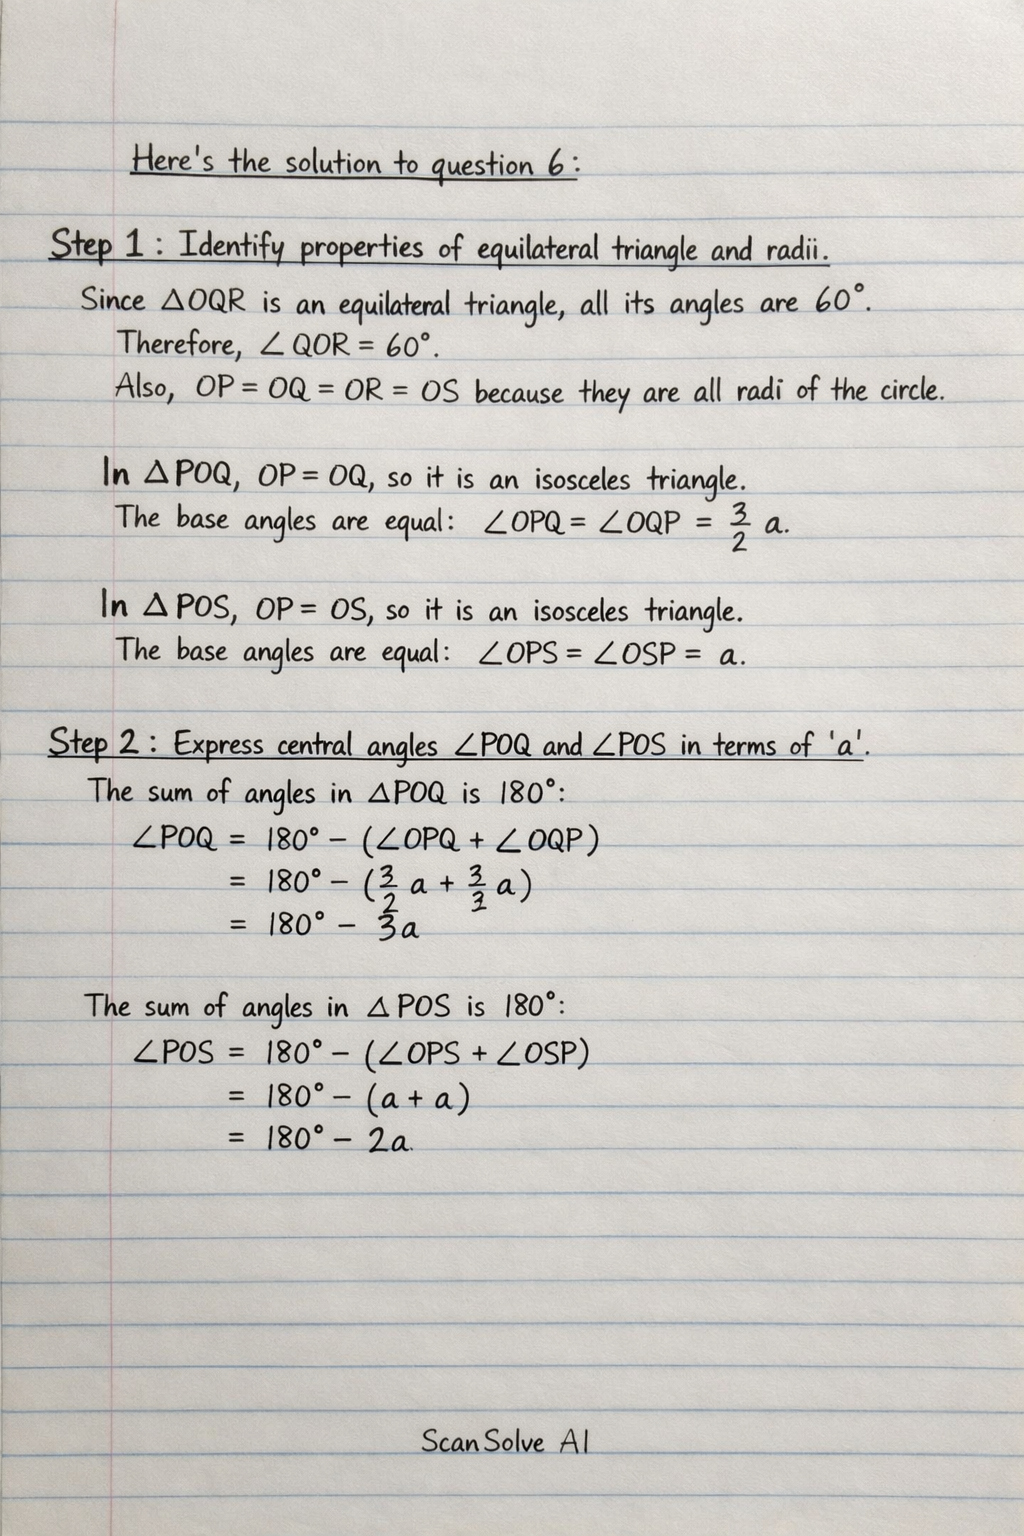 Here's the solution to question 6:
Step 1: Identify properties of equilateral triangle and radii.
Since △OQR is an equilateral triangle, all its angles are 60°.
Therefore, ∠QOR = 60°.
Also, OP = OQ = OR = OS because they are all radi of the circle.
In △POQ, OP = OQ, so it is an isosceles triangle.
The base angles are equal: ∠OPQ = ∠OQP = 3/2 a.
In △POS, OP = OS, so it is an isosceles triangle.
The base angles are equal: ∠OPS = ∠OSP = a.
Step 2: Express central angles ∠POQ and ∠POS in terms of 'a'.
The sum of angles in △POQ is 180°:
∠POQ = 180° − (∠OPQ + ∠OQP)
= 180° − (3/2 a + 3/2 a)
= 180° − 3a
The sum of angles in △POS is 180°:
∠POS = 180° − (∠OPS + ∠OSP)
= 180° − (a + a)
= 180° − 2a.
ScanSolve AI